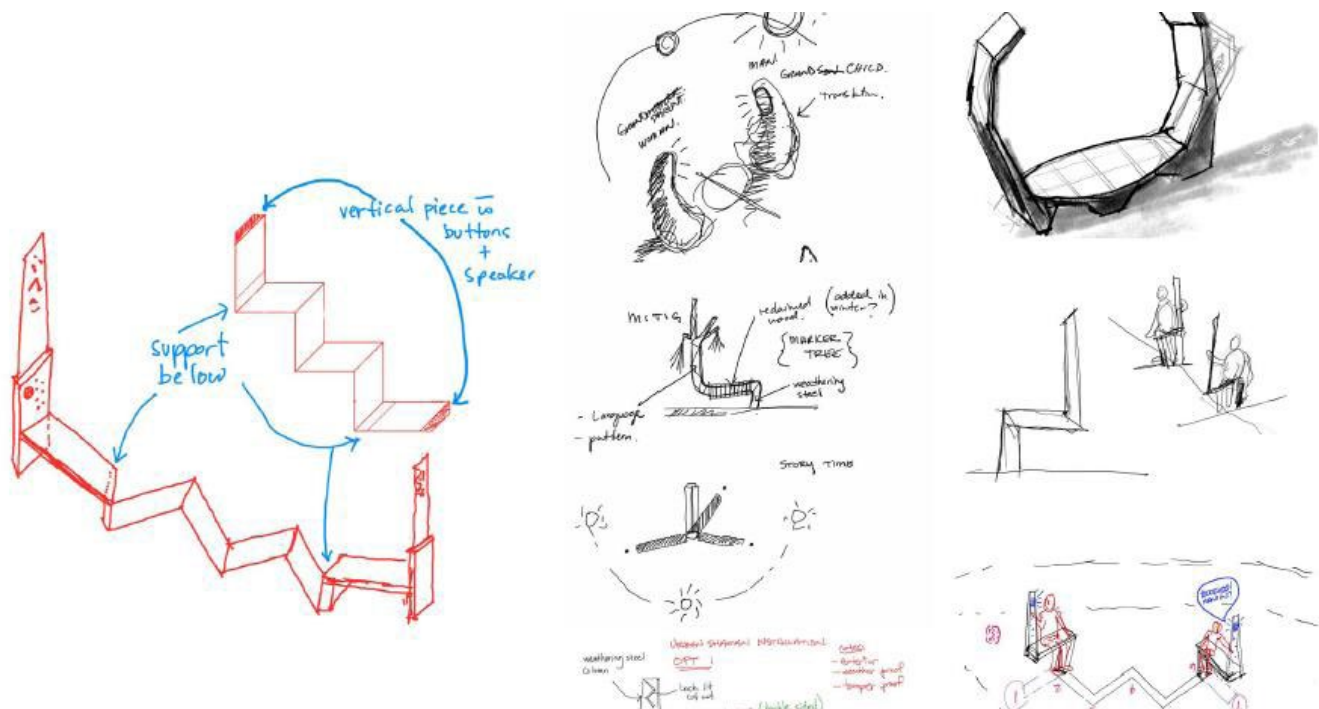 vertical piece w̄
buttons
+
speaker
support
below
MAN.
GRANDSON CHILD.
Translation.
WOMAN.
MITIG
reclaimed
wood.
(added in
winter?)
{MARKER
TREE}
weathering
steel
- Language
- pattern.
STORY TIME
URBAN SHAMAN INSTALLATION
OPT 1
weathering steel
column
back lit
cut out
(double sided)
notes:
- exterior
- weather proof
- tamper proof